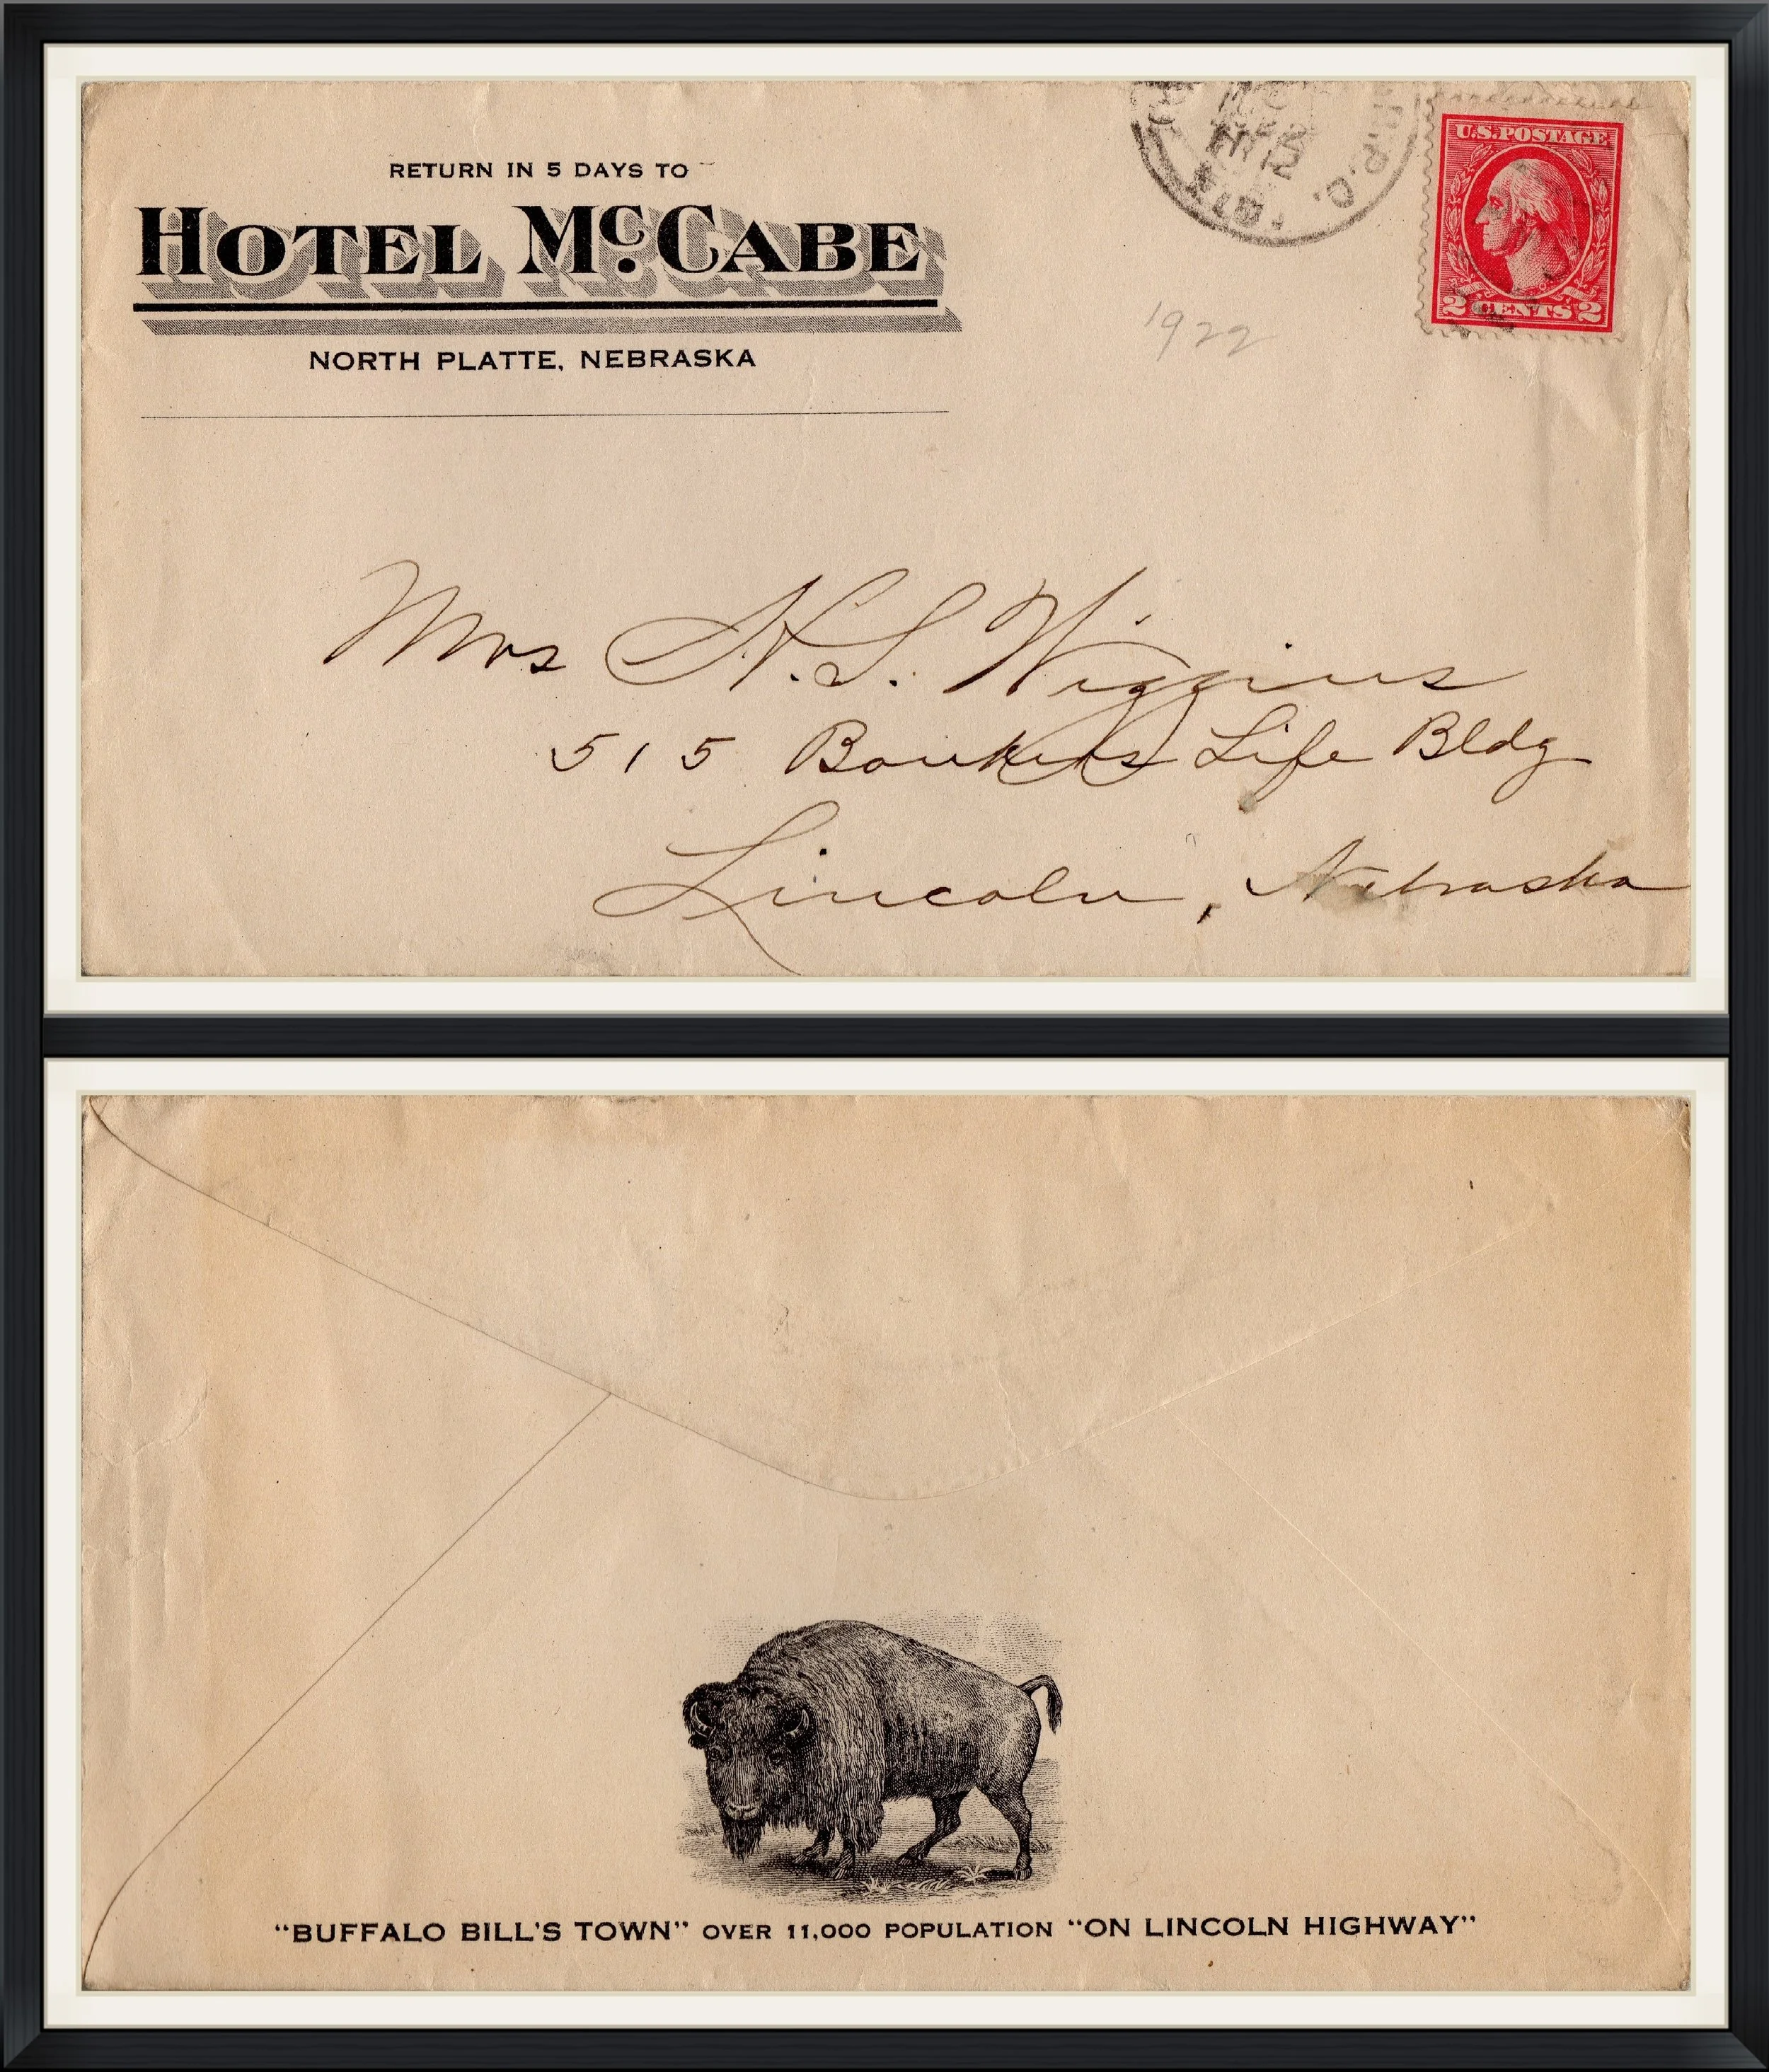 RETURN IN 5 DAYS TO
HOTEL McCABE
NORTH PLATTE, NEBRASKA
R.P.O.
U.S. POSTAGE
2 CENTS 2
1922
Mrs H. S. Wiggins
515 Bankers Life Bldg
Lincoln, Nebraska
"BUFFALO BILL'S TOWN" OVER 11,000 POPULATION "ON LINCOLN HIGHWAY"